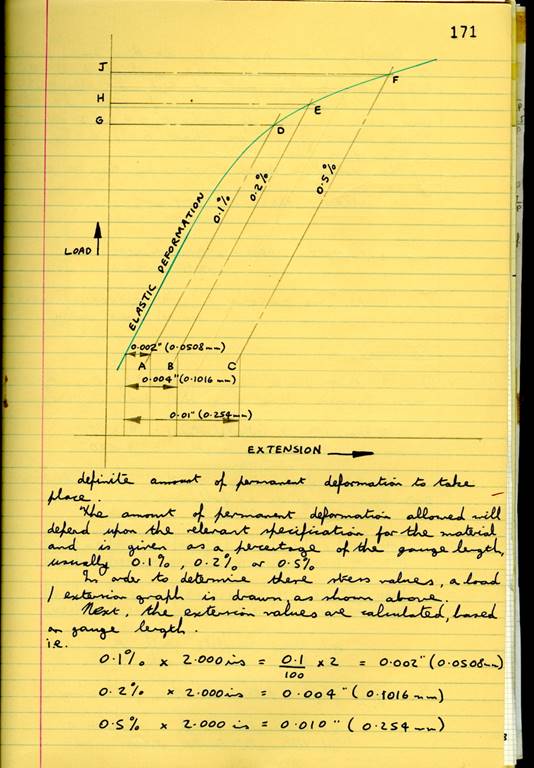 171
J
H
G
F
E
D
0.1%
0.2%
0.5%
ELASTIC DEFORMATION
LOAD
0.002" (0.0508mm)
A B C
0.004" (0.1016 mm)
0.01" (0.254mm)
EXTENSION
definite amount of permanent deformation to take
place.
The amount of permanent deformation allowed will
depend upon the relevant specification for the material
and is given as a percentage of the gauge length,
usually 0.1%, 0.2% or 0.5%
In order to determine these stress values, a load
/ extension graph is drawn, as shown above.
Next, the extension values are calculated, based
on gauge length.
i.e.
0.1% x 2.000 ins = 0.1/100 x 2 = 0.002" (0.0508mm)
0.2% x 2.000 ins = 0.004" (0.1016 mm)
0.5% x 2.000 ins = 0.010" (0.254 mm)